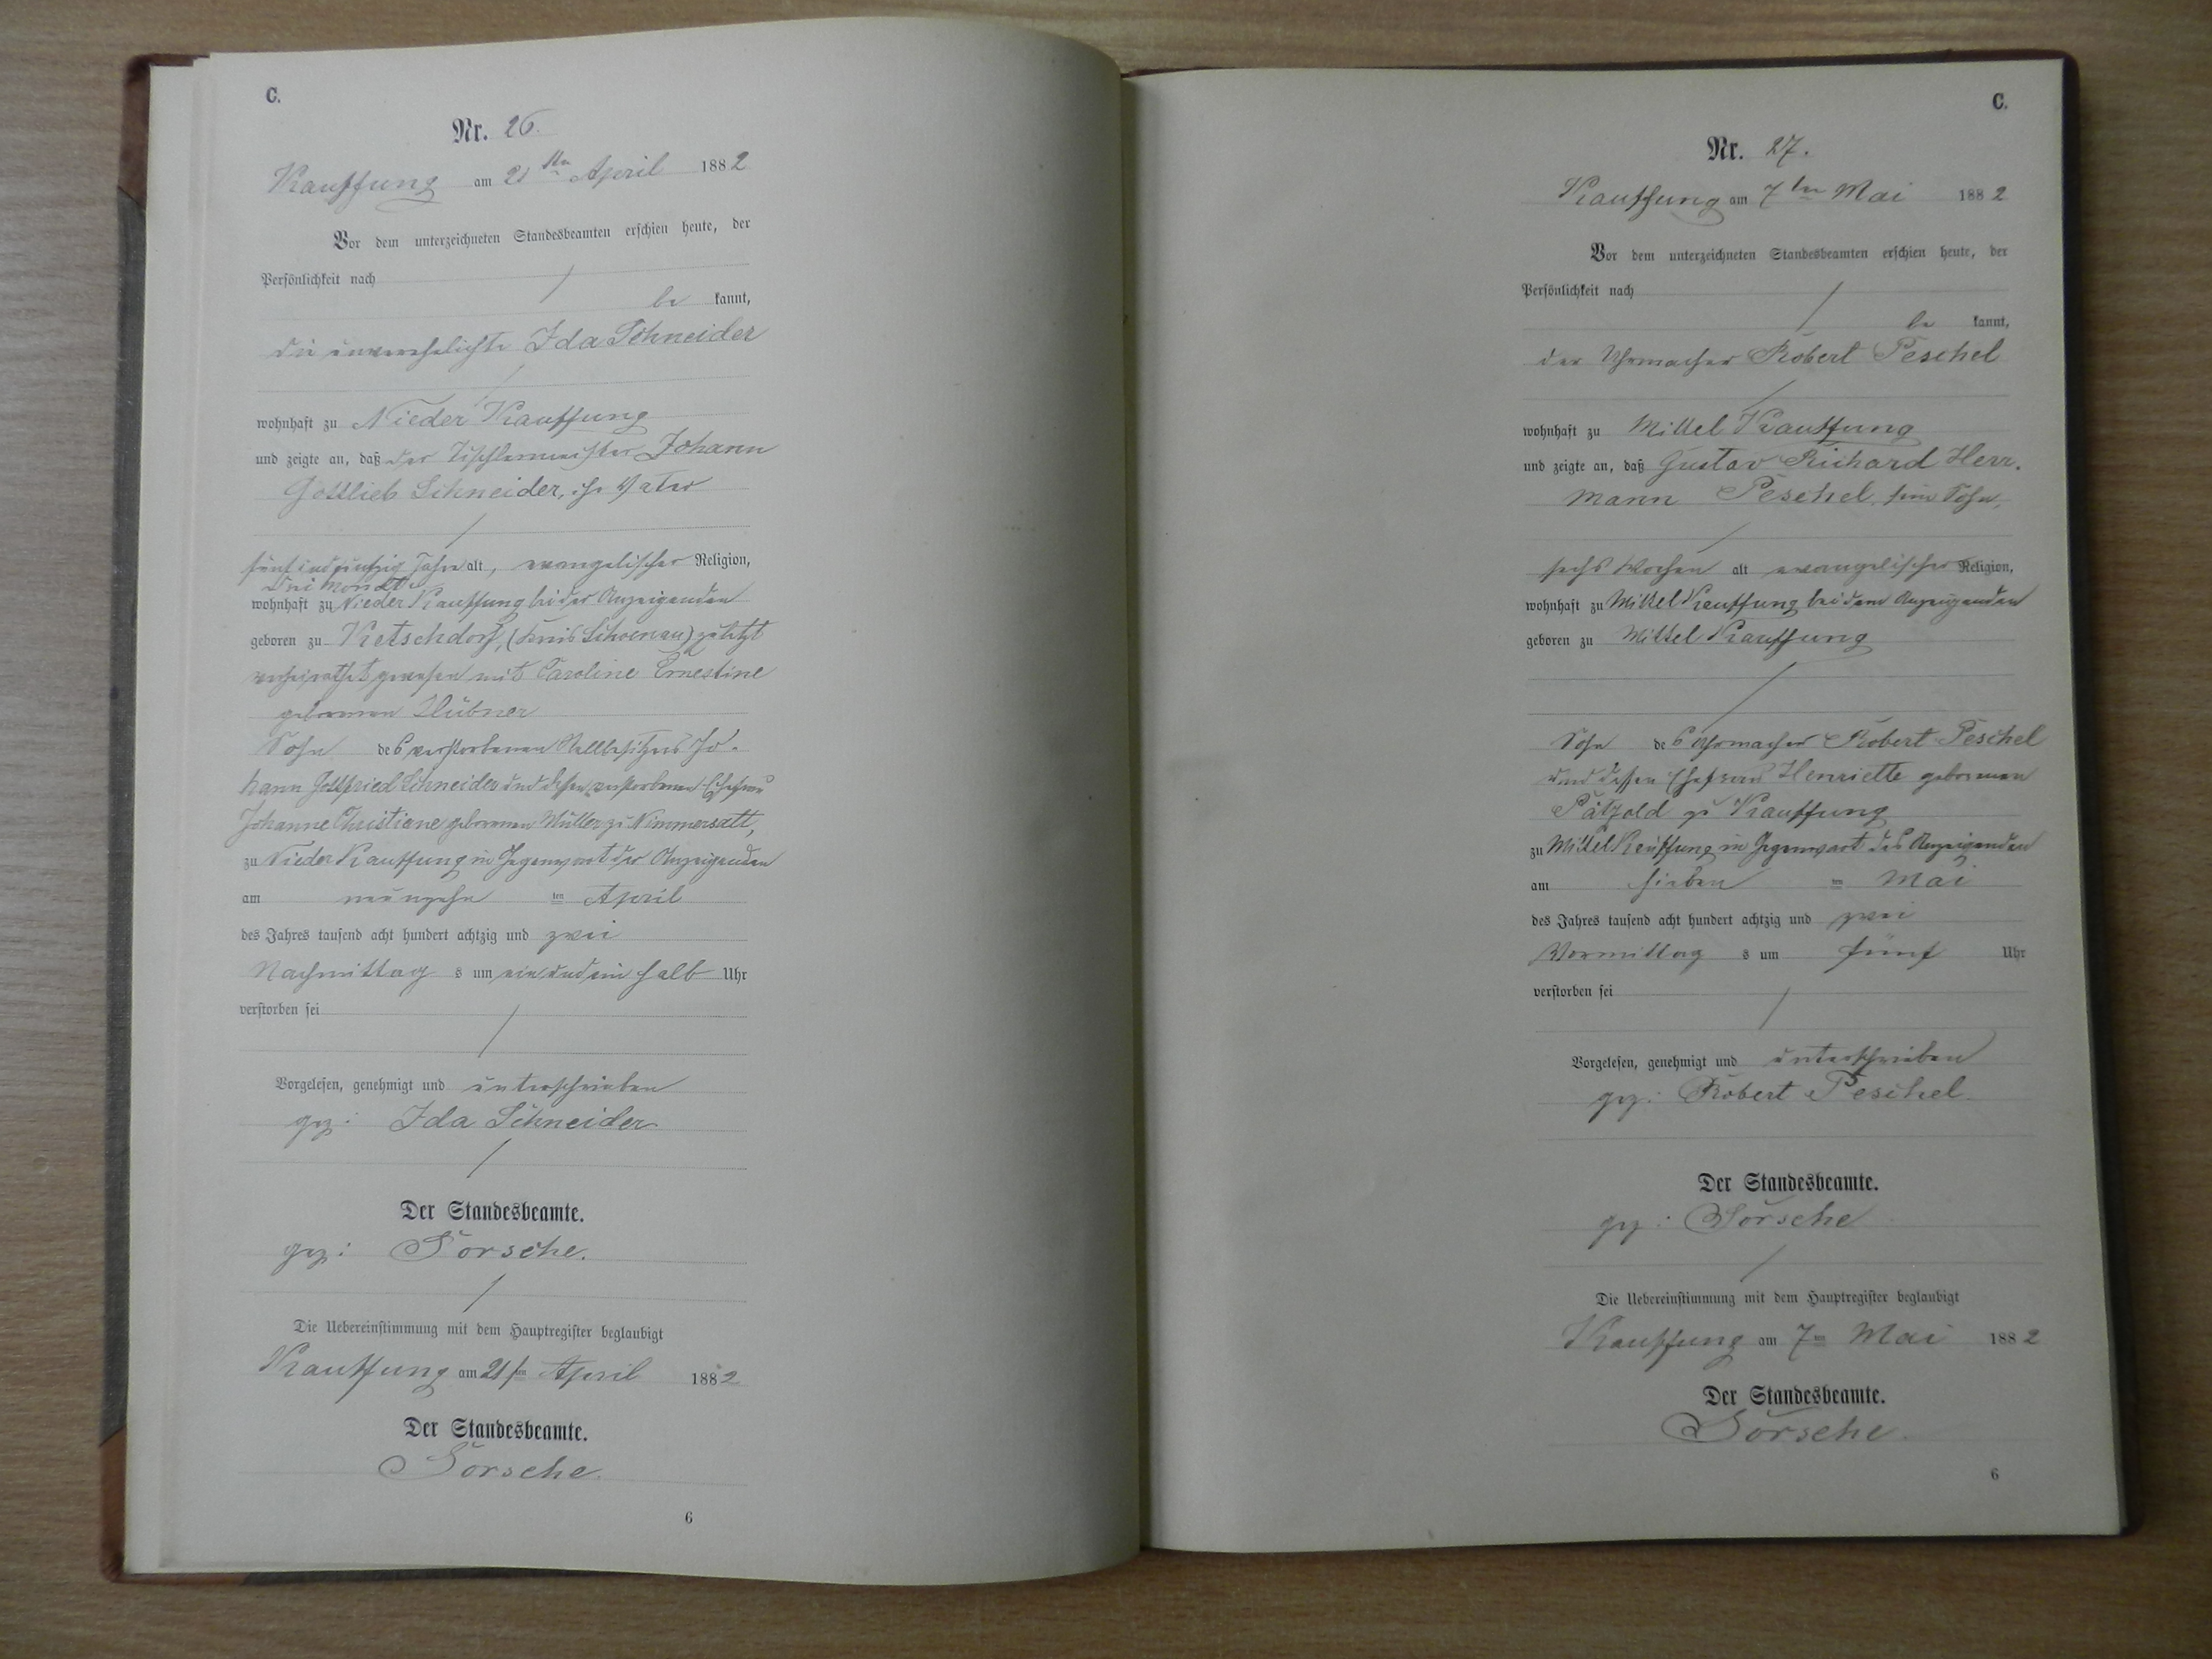 C.
Nr. 26.
Kauffung am 21ten April 1882
Vor dem unterzeichneten Standesbeamten erschien heute, der
Persönlichkeit nach
be kannt,
die unverehelichte Ida Schneider
wohnhaft zu Nieder Kauffung
und zeigte an, daß der Tischlermeister Johann
Gottlieb Schneider, ihr Vater
Jahre alt, evangelischer Religion,
drei Monate
wohnhaft zu Nieder Kauffung bei der Anzeigenden
geboren zu Ketschdorf, (Kreis Schoenau) zuletzt
verheirathet gewesen mit Caroline Ernestine
geborenen Hübner
Sohn des verstorbenen Stellbesitzers Jo-
hann Gottfried Schneider und dessen verstorbenen Ehefrau
Johanne Christiane geborenen Müller zu Nimmersatt,
zu Nieder Kauffung in Gegenwart der Anzeigenden
am neunzehn ten April
des Jahres tausend acht hundert achtzig und zwei
Nachmittag s um ein und ein halb Uhr
verstorben sei
Vorgelesen, genehmigt und unterschrieben
gez: Ida Schneider
Der Standesbeamte.
gez: Sorsche.
Die Uebereinstimmung mit dem Hauptregister beglaubigt
Kauffung am 21ten April 1882
Der Standesbeamte.
Sorsche.
6
C.
Nr. 27.
Kauffung am 7ten Mai 1882
Vor dem unterzeichneten Standesbeamten erschien heute, der
Persönlichkeit nach
be kannt,
der Uhrmacher Robert Peschel
wohnhaft zu Mittel Kauffung
und zeigte an, daß Gustav Richard Herr-
mann Peschel, sein Sohn,
sechs Wochen alt evangelischer Religion,
wohnhaft zu Mittel Kauffung bei dem Anzeigenden
geboren zu Mittel Kauffung
Sohn des Uhrmacher Robert Peschel
und dessen Ehefrau Henriette geborenen
Pätzold zu Kauffung
zu Mittel Kauffung in Gegenwart des Anzeigenden
am sieben ten Mai
des Jahres tausend acht hundert achtzig und zwei
Vormittag s um fünf Uhr
verstorben sei
Vorgelesen, genehmigt und unterschrieben
gez: Robert Peschel
Der Standesbeamte.
gez: Sorsche
Die Uebereinstimmung mit dem Hauptregister beglaubigt
Kauffung am 7ten Mai 1882
Der Standesbeamte.
Sorsche.
6